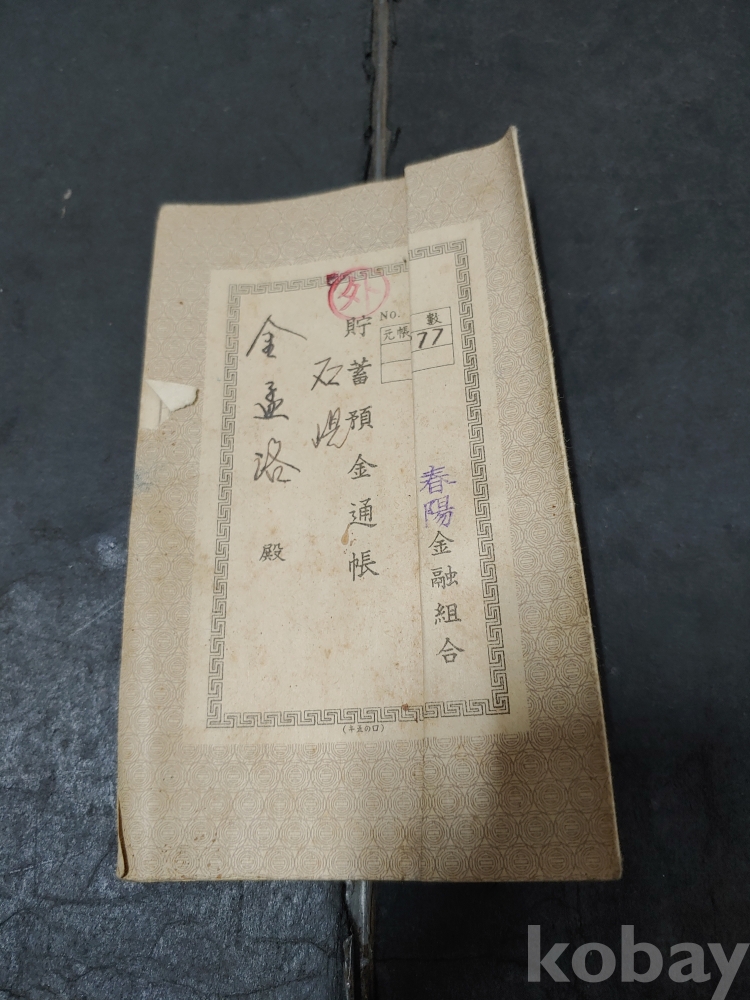 春陽金融組合
No.
元帳 數
77
外
貯蓄預金通帳
石峴
金孟洛 殿
kobay